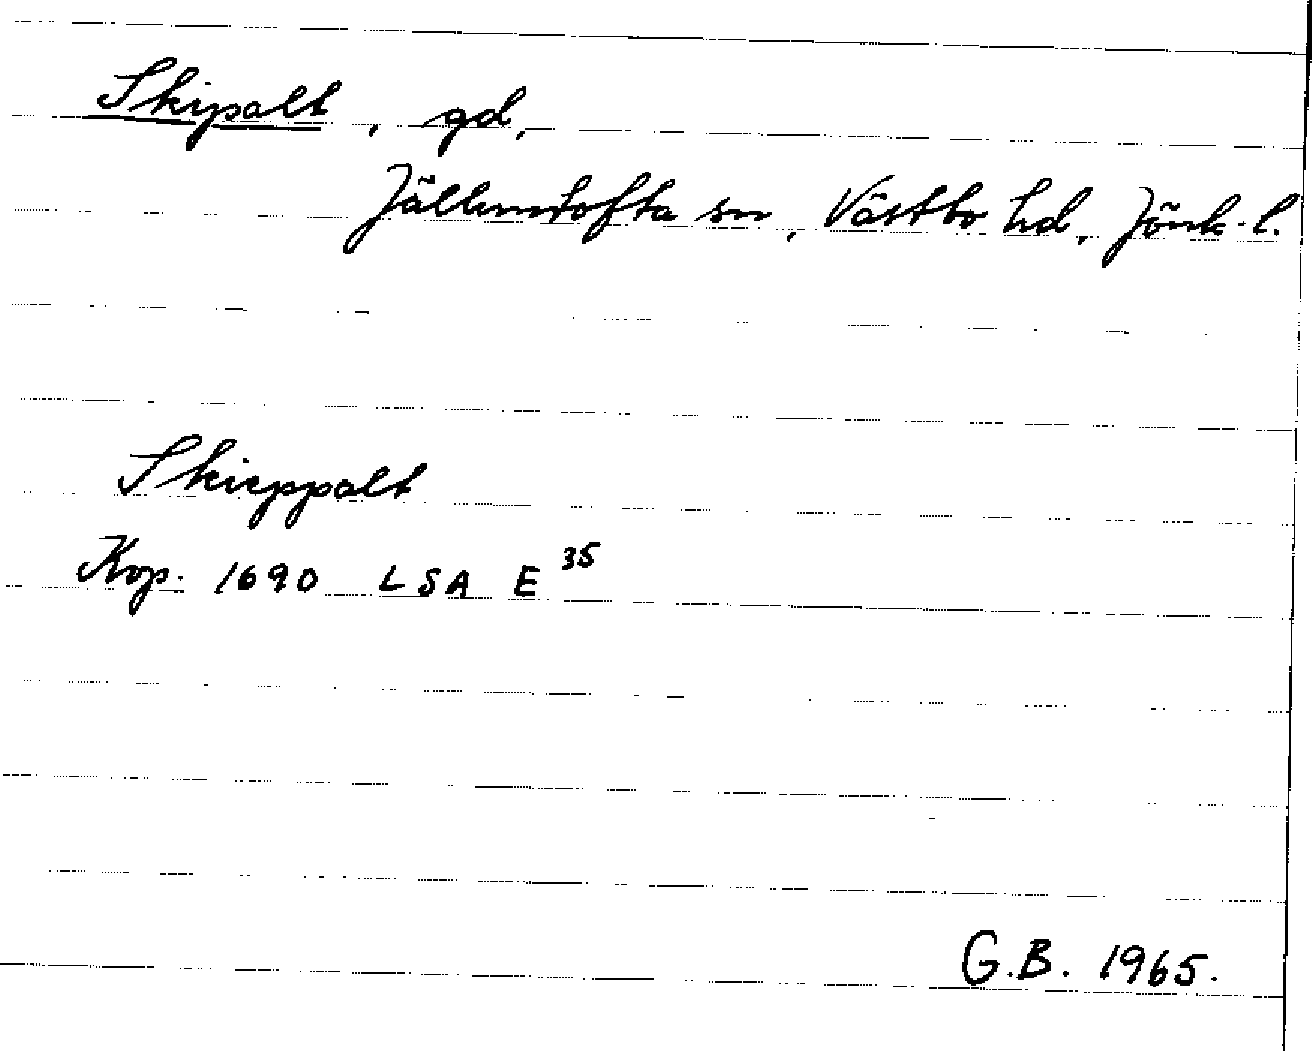 Skipalt, gd,
Jällundtofta sn, Västbo hd, Jönk. l.
Skieppalt
Kop. 1690 LSA E 35
G.B. 1965.